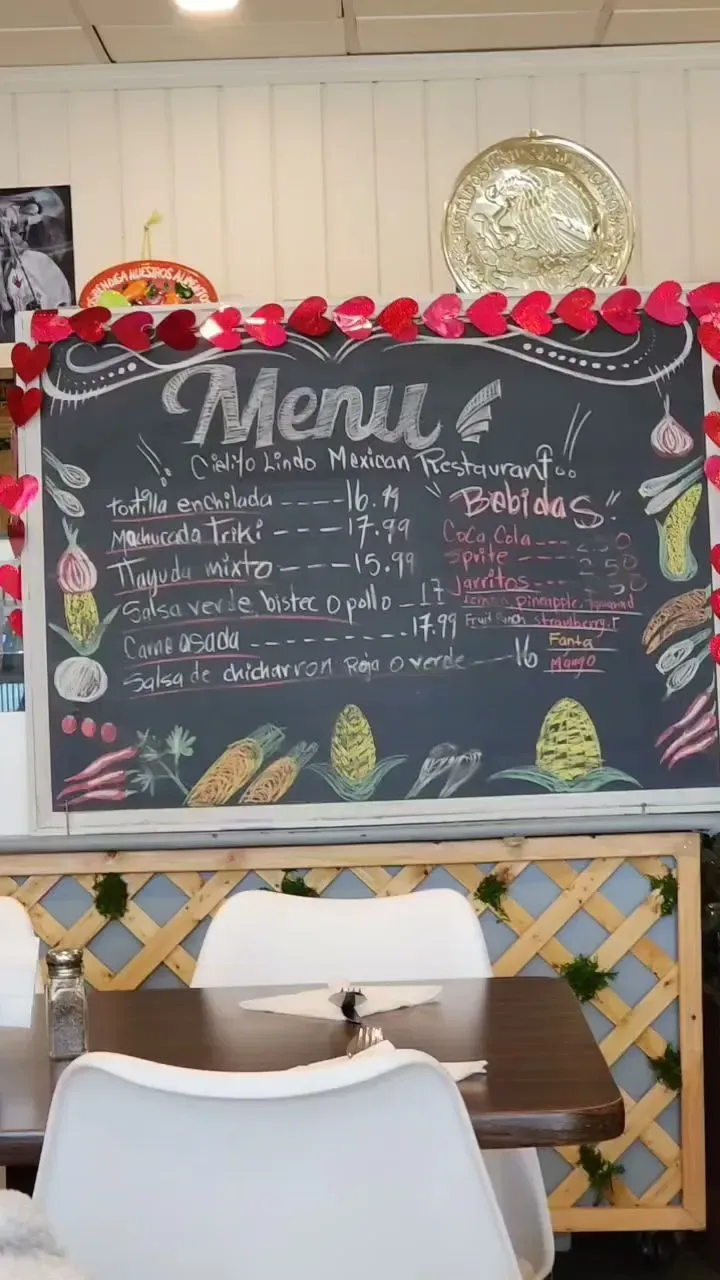 BENDIGA NUESTROS ALIMENTOS
ESTADOS UNIDOS MEXICANOS
Menu
Cielito Lindo Mexican Restaurant
tortilla enchilada ----16.99
Machucada Triki ----17.99
Tlayuda mixto ----15.99
Salsa verde, bistec o pollo --17
Carne asada ----------17.99
Salsa de chicharron Roja o verde ---16
"Bebidas"
Coca Cola--- 2.50
Sprite--- 2.50
Jarritos--- 3.50
Lemon, pineapple, tamarind
Fruit Punch, strawberry,
Fanta
Mango